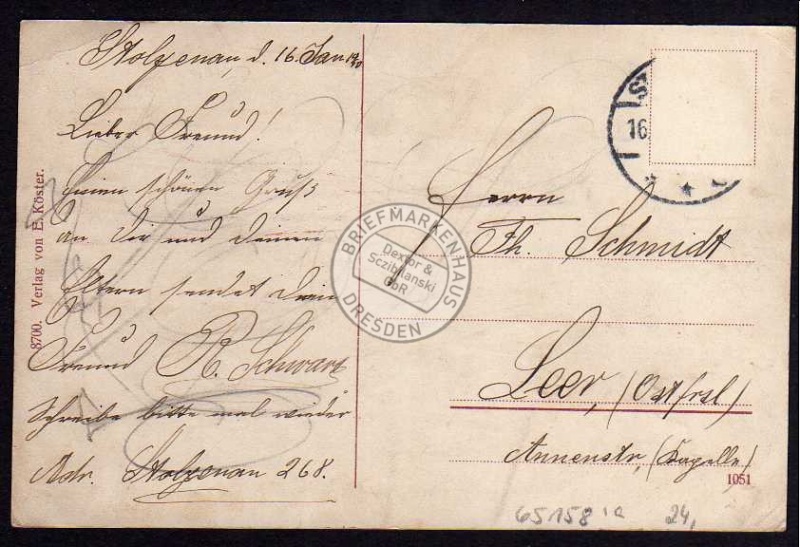 Stolzenau, d. 16. Jan.
Lieber Freund!
Einen schönen Gruß
an Dir und deinen
Eltern sendet dein
Freund R. Schwarz
Schreibe bitte mal wieder
Adr. Stolzenau 268.
8700. Verlag von E. Köster.
16.
Herrn
Th. Schmidt
Leer, (Ostfrsl)
Annenstr, (Kapelle)
1051
65158 1a 24,
BRIEFMARKENHAUS
Dextor &
GbR
DRESDEN